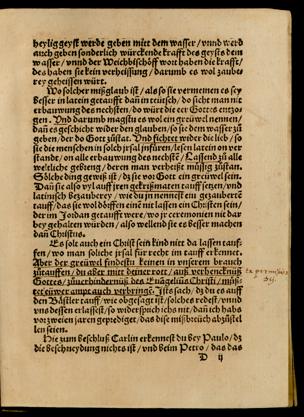 heylig geyst werde geben mitt dem wasser / vnnd werd
auch geben sonderlich würckende krafft des geysts dem
wasser / vnnd der Weichbischöff wort haben die krafft /
des haben sie kein verheissung / darumb es wol zaube
rey geheissen würt.
Wo solcher mißglaub ist / als so sie vermeinen es sey
besser in latein getaufft dañ in teütsch / do sicht man nit
erbauwung des nechsten. do würt die eer Gottes entzo
gen. Vnd darumb magstu es wol ein greüwel nennen /
dañ es geschicht wider den glauben / so sie dem wasser zů
geben / der do Gott zůstat. Vnd fichtet wider die lieb / so
sie die menschen in solch jrsal infüren / lesen latein on ver
standt / on alle erbauwung des nechstē / Lassend zů alle
weltliche gesteng / deren man verheißt müssig zůstan.
Solche ding gewiß ist / dz sie vor Gott ein greüwel sein.
Dañ sie also vyl auff jren gekrißmaten tauff setzen / vnd
latinisch bezauberey / wie du jn nennest ein gezauberte
tauff / das sie wol dörffen eine nit lassen ein Christen sein /
der im Jordan getaufft were / wo jr ceremonien nit dar
bey gehalten würden / also wellend sie es besser machen
dañ Christus.
Es solt auch ein Christ sein kind nitt da lassen tauf=
fen / wo man solche jrsal für recht im tauff erkennet.
Aber der greüwel findestu keinen in vnserem brauch
zůtauffen / du aber mitt deiner rott / auß verhencknüß
Gottes / zů verhindernüß des Euägeliūs Christi /
ret eüwer ampt auch verbringe.
den Bästler tauff / wie obgesagt ist / solches redest / vnnd
vns dessen erlassest / so widersprich ichs nit / dañ ich habs
vor zweien jaren geprediget / das dise mißbreüch abzůstel
len seien.
Hie zům beschluß Carlin erkennestu bey Paulo / dz
die beschneydung nichts ist / vnd beim Petro / das das
D ij